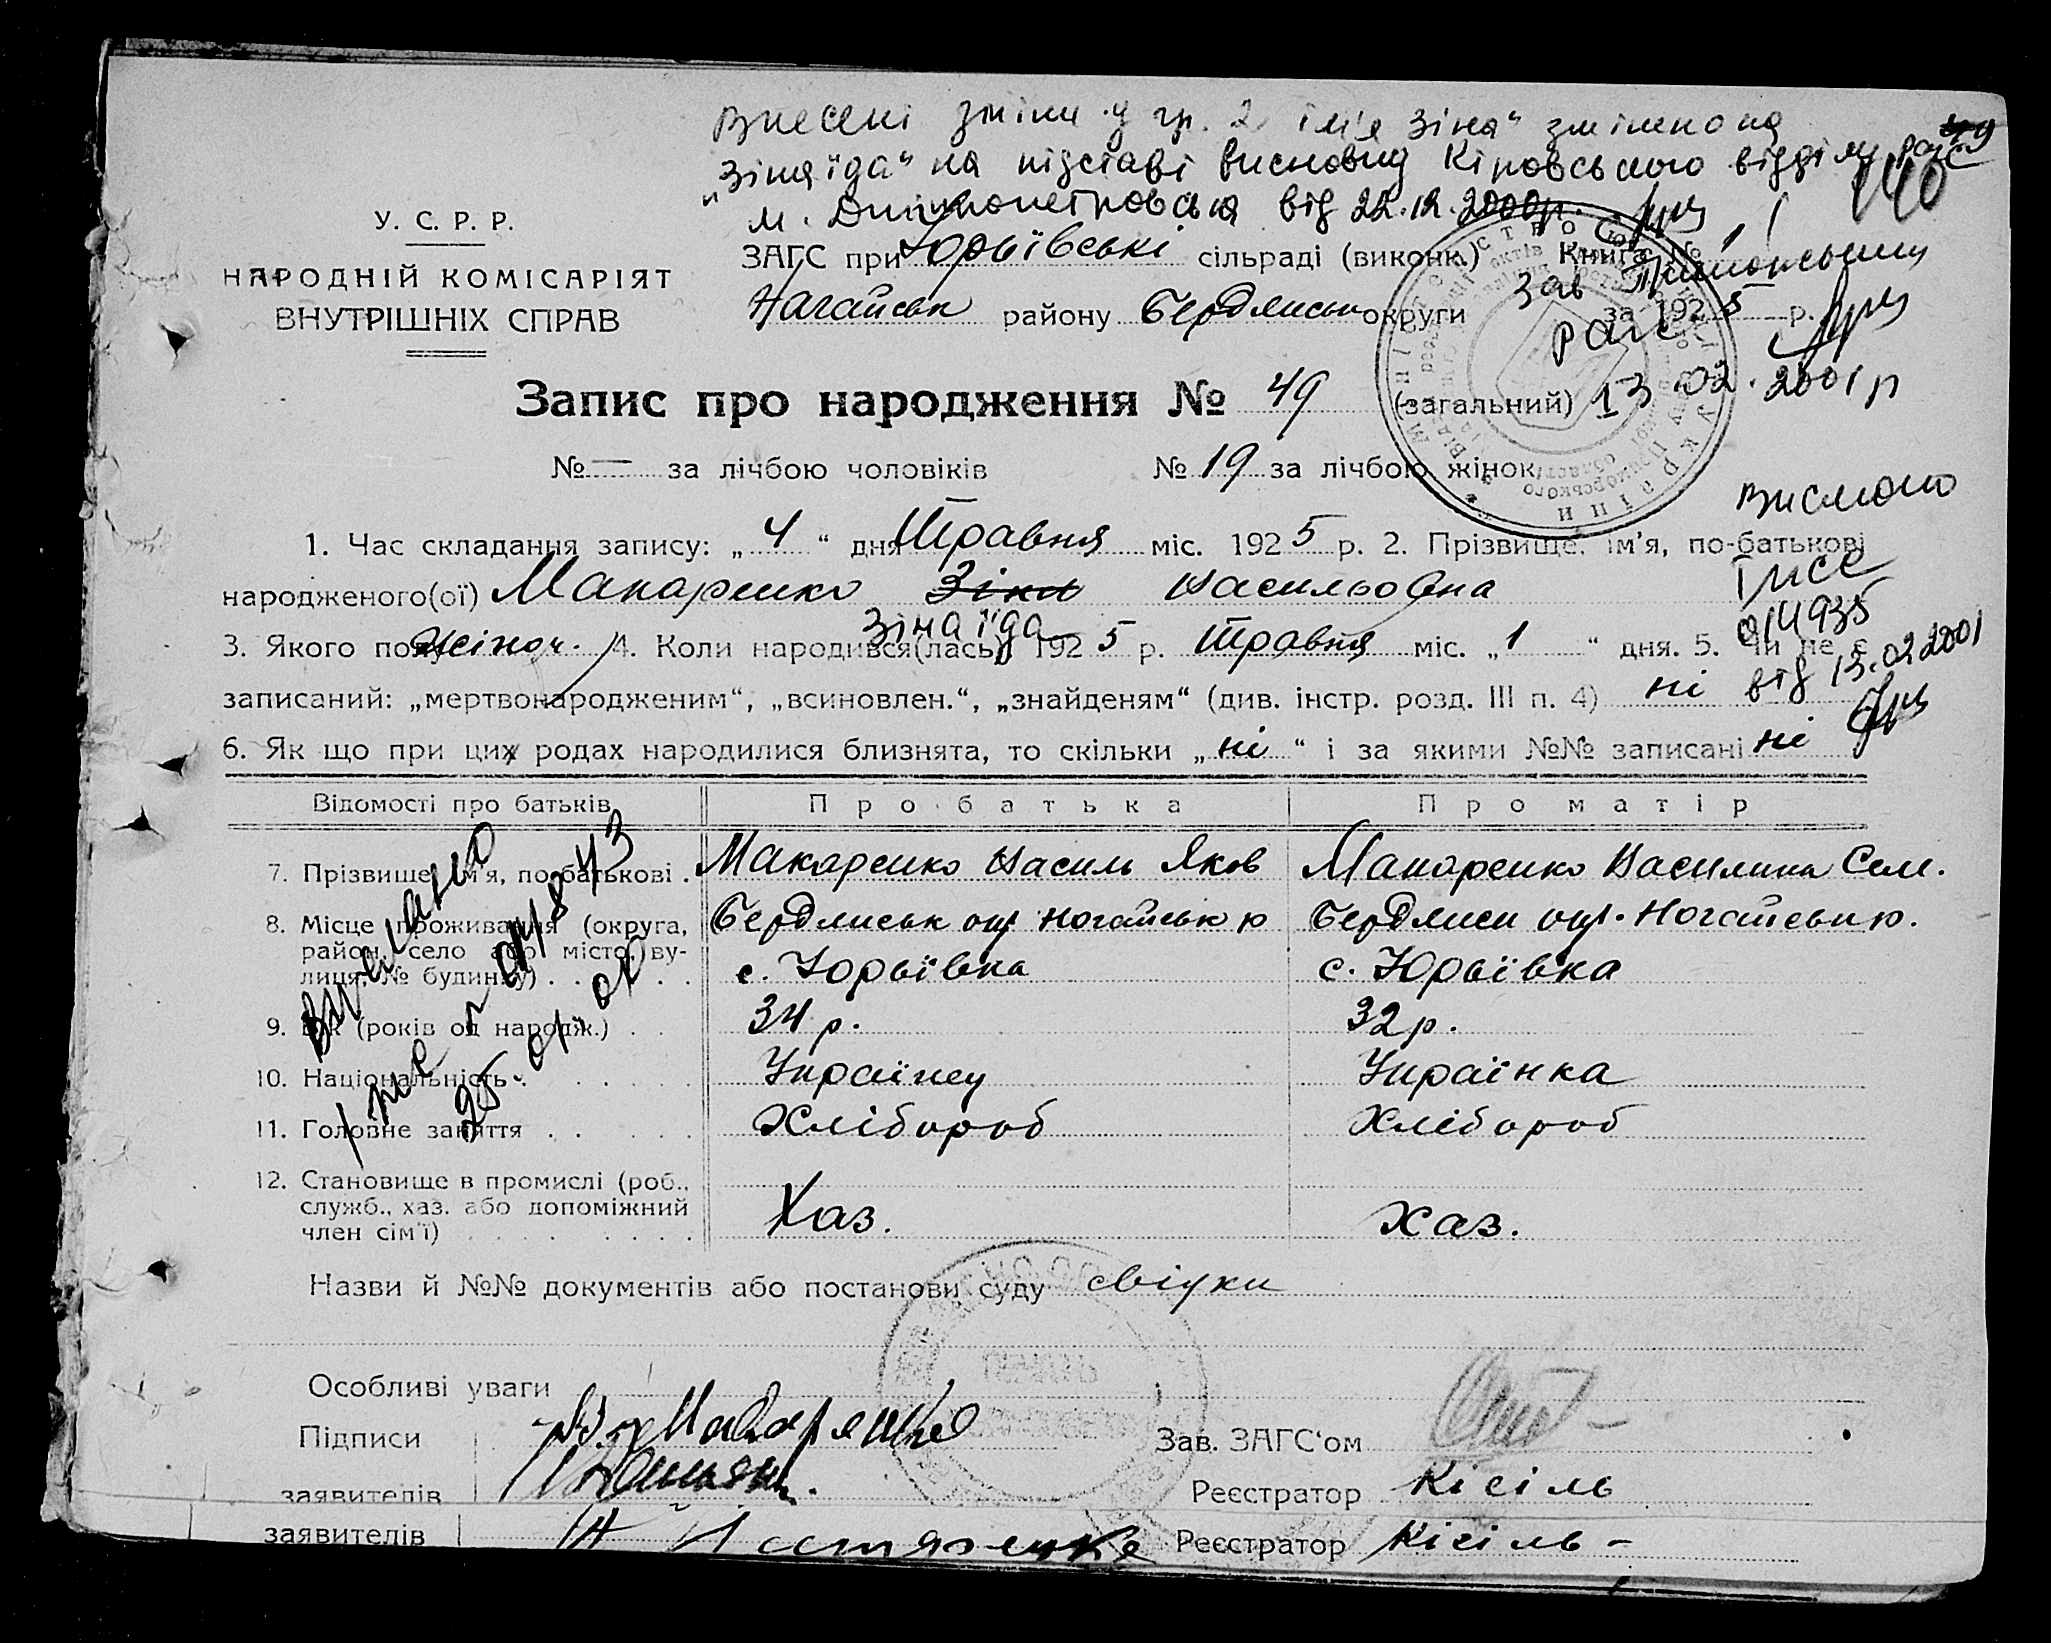 Внесені зміни у гр. 2 ім'я Зіна" змінено на
"Зінаїда" на підставі висновку Кіровського відділу рагс
м. Дніпропетровська від 22.12.2000р.
49
140
У. С. Р. Р.
НАРОДНІЙ КОМІСАРІЯТ
ВНУТРІШНІХ СПРАВ
ЗАГС при Юрьївські сільраді (виконк.) Книга № 1
Нагайськ району Бердянськ округи за 1925 р.
Зав Приморським
рагс
13.02.2001р
Запис про народження № 49 (загальний)
№ — за лічбою чоловіків № 19 за лічбою жінок
1. Час складання запису: „4“ дня Травня міс. 1925 р. 2. Прізвище, ім'я, по-батькові
народженого(ої) Макаренко Зіна Васильовна
Зінаїда
3. Якого полу жіноч. 4. Коли народився(лась) 1925 р. Травня міс. „1“ дня. 5. Чи не є
записаний: „мертвонародженим“, „всиновлен.“, „знайденям“ (див. інстр. розд. III п. 4) ні
6. Як що при цих родах народилися близнята, то скільки „ні“ і за якими №№ записані ні
Виписано
І жс
014935
від 13.02.2001
Відомості про батьків Про батька Про матір
7. Прізвище, ім'я, по-батькові . Макаренко Василь Яков Макаренко Василина Сем.
8. Місце проживання (округа, Бердянськ окр Ногайськ р Бердянськ окр. Ногайськ р.
район, село або місто, ву-
лиця, № будинку) . . . . с. Юрьївка с. Юрьївка
9. Вік (років од народж.) . . 34 р. 32 р.
10. Національність . . . . . Українец Українка
11. Головне заняття . . . . . Хлібороб Хлібороб
12. Становище в промислі (роб.,
служб., хаз. або допоміжний Хаз. хаз.
член сім'ї) . . . . . . .
Виписано
Назви й №№ документів або постанови суду свідки
Особливі уваги
Підписи Макаренко Зав. ЗАГС‘ом
заявителів Реєстратор Кісіль
заявителів Реєстратор Кісіль –